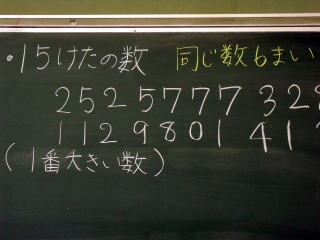 ・15けたの数 同じ数6まい
252 5777 32
112 9801 41
(1番大きい数)